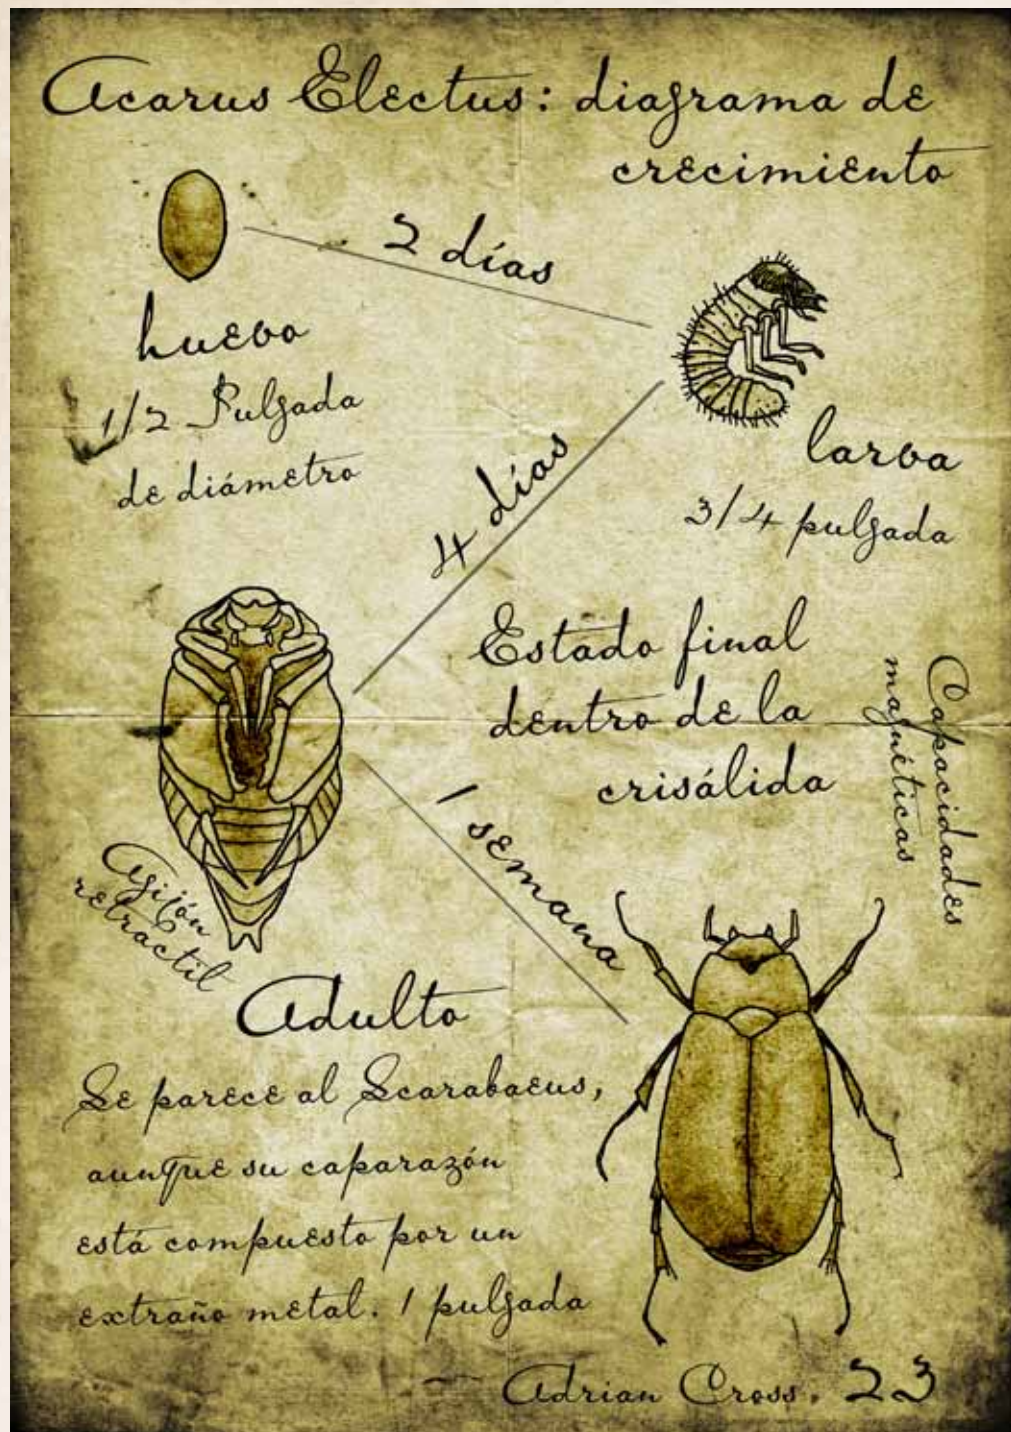 Acarus Electus: diagrama de
crecimiento
2 días
huevo
1/2 Pulgada
de diámetro
larva
3/4 pulgada
4 días
Estado final
dentro de la
crisálida
Capacidades
magnéticas
1 semana
Aguijón
retractil
Adulto
Se parece al Scarabaeus,
aunque su caparazón
está compuesto por un
extraño metal. 1 pulgada
Adrian Cross. 23